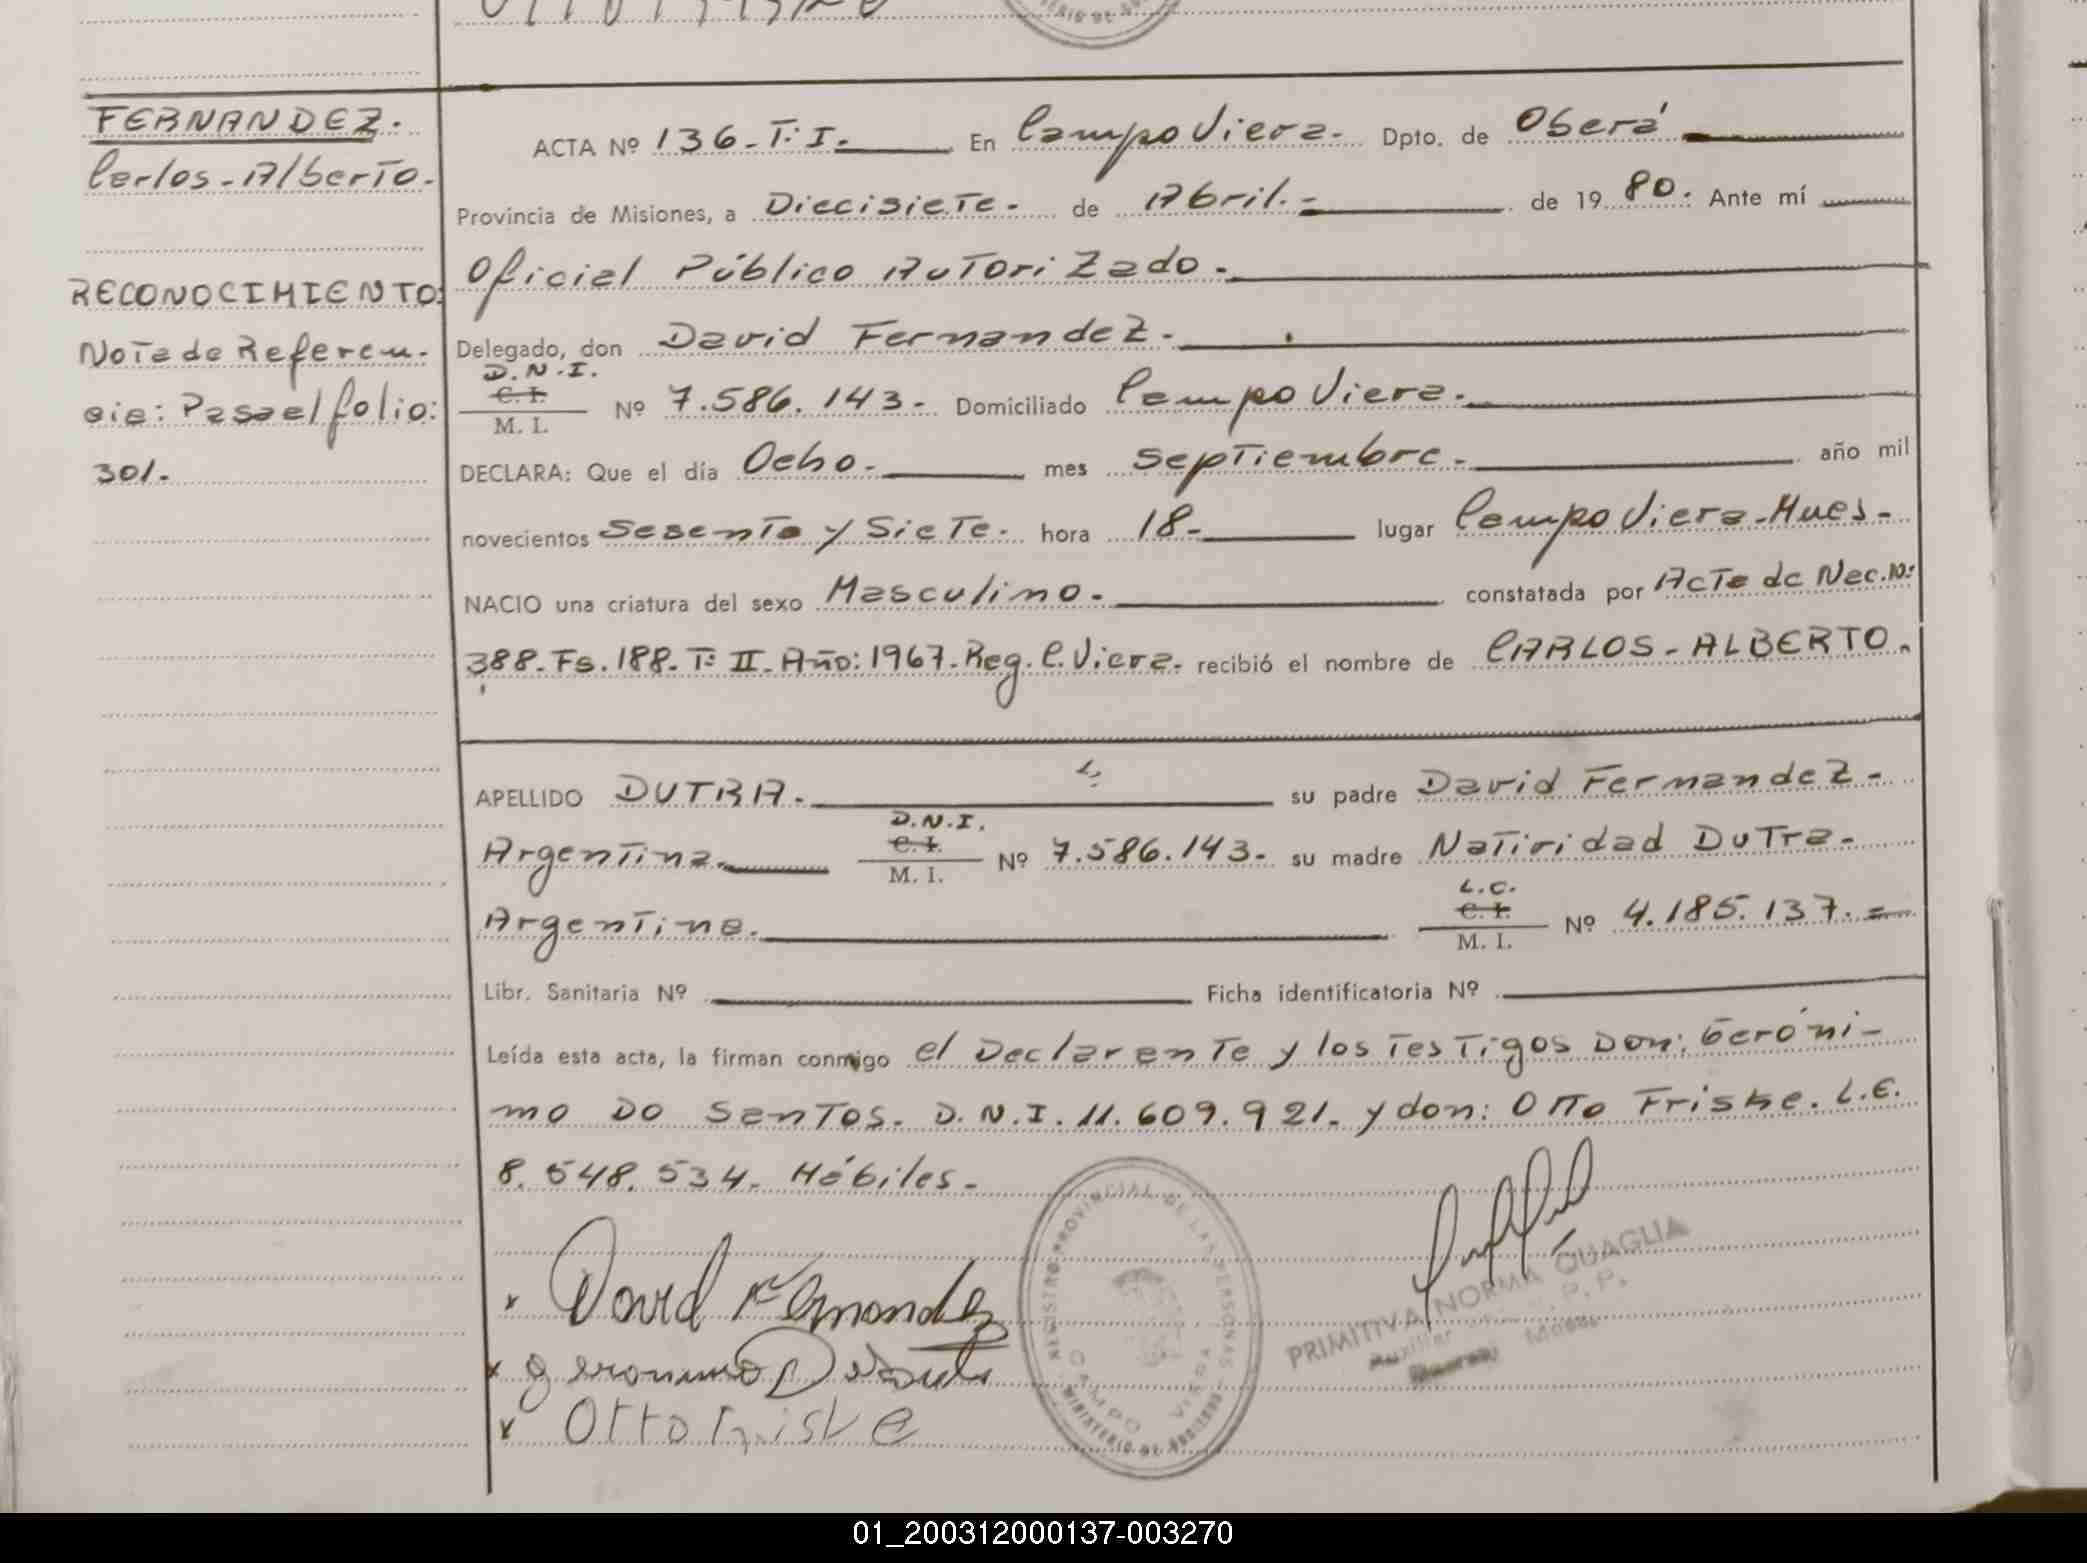 FERNANDEZ.
Carlos-Alberto.
RECONOCIMIENTO:
Nota de Referen-
cia: Pasa el folio:
301.
ACTA Nº 136-T: I. En Campo Viera. Dpto. de Oberá
Provincia de Misiones, a Diecisiete. de Abril.- de 19 80. Ante mí
Oficial Público Autorizado.
Delegado, don David Fernandez.
D.N.I.
C. I.
M. I.
Nº 7.586.143. Domiciliado Campo Viera.
DECLARA: Que el día Ocho. mes Septiembre. año mil
novecientos Sesenta y Siete. hora 18. lugar Campo Viera-Mnes-
NACIO una criatura del sexo Masculino. constatada por Acta de Nac.N:
388-Fs.188-T: II-Año:1967-Reg.C.Viera. recibió el nombre de CARLOS-ALBERTO.
APELLIDO DUTRA. su padre David Fernandez-
Argentina. D.N.I. C. I. M. I. Nº 7.586.143. su madre Natividad Dutra-
Argentina. L.C. C. I. M. I. Nº 4.185.137.=
Libr. Sanitaria Nº Ficha identificatoria Nº
Leída esta acta, la firman conmigo el Declarante y los Testigos Don: Geróni-
mo Do Santos. D.N.I. 11.609.921. y don: Otto Friske. L.E.
8.548.534. Hábiles-
x David Fernandez
x geronimo
x Otto Friske
REGISTRO PROVINCIAL DE LAS PERSONAS
CAMPO VIERA
MINISTERIO DE GOBIERNO
PRIMITIVA NORMA QUAGLIA
Auxiliar
01_200312000137-003270